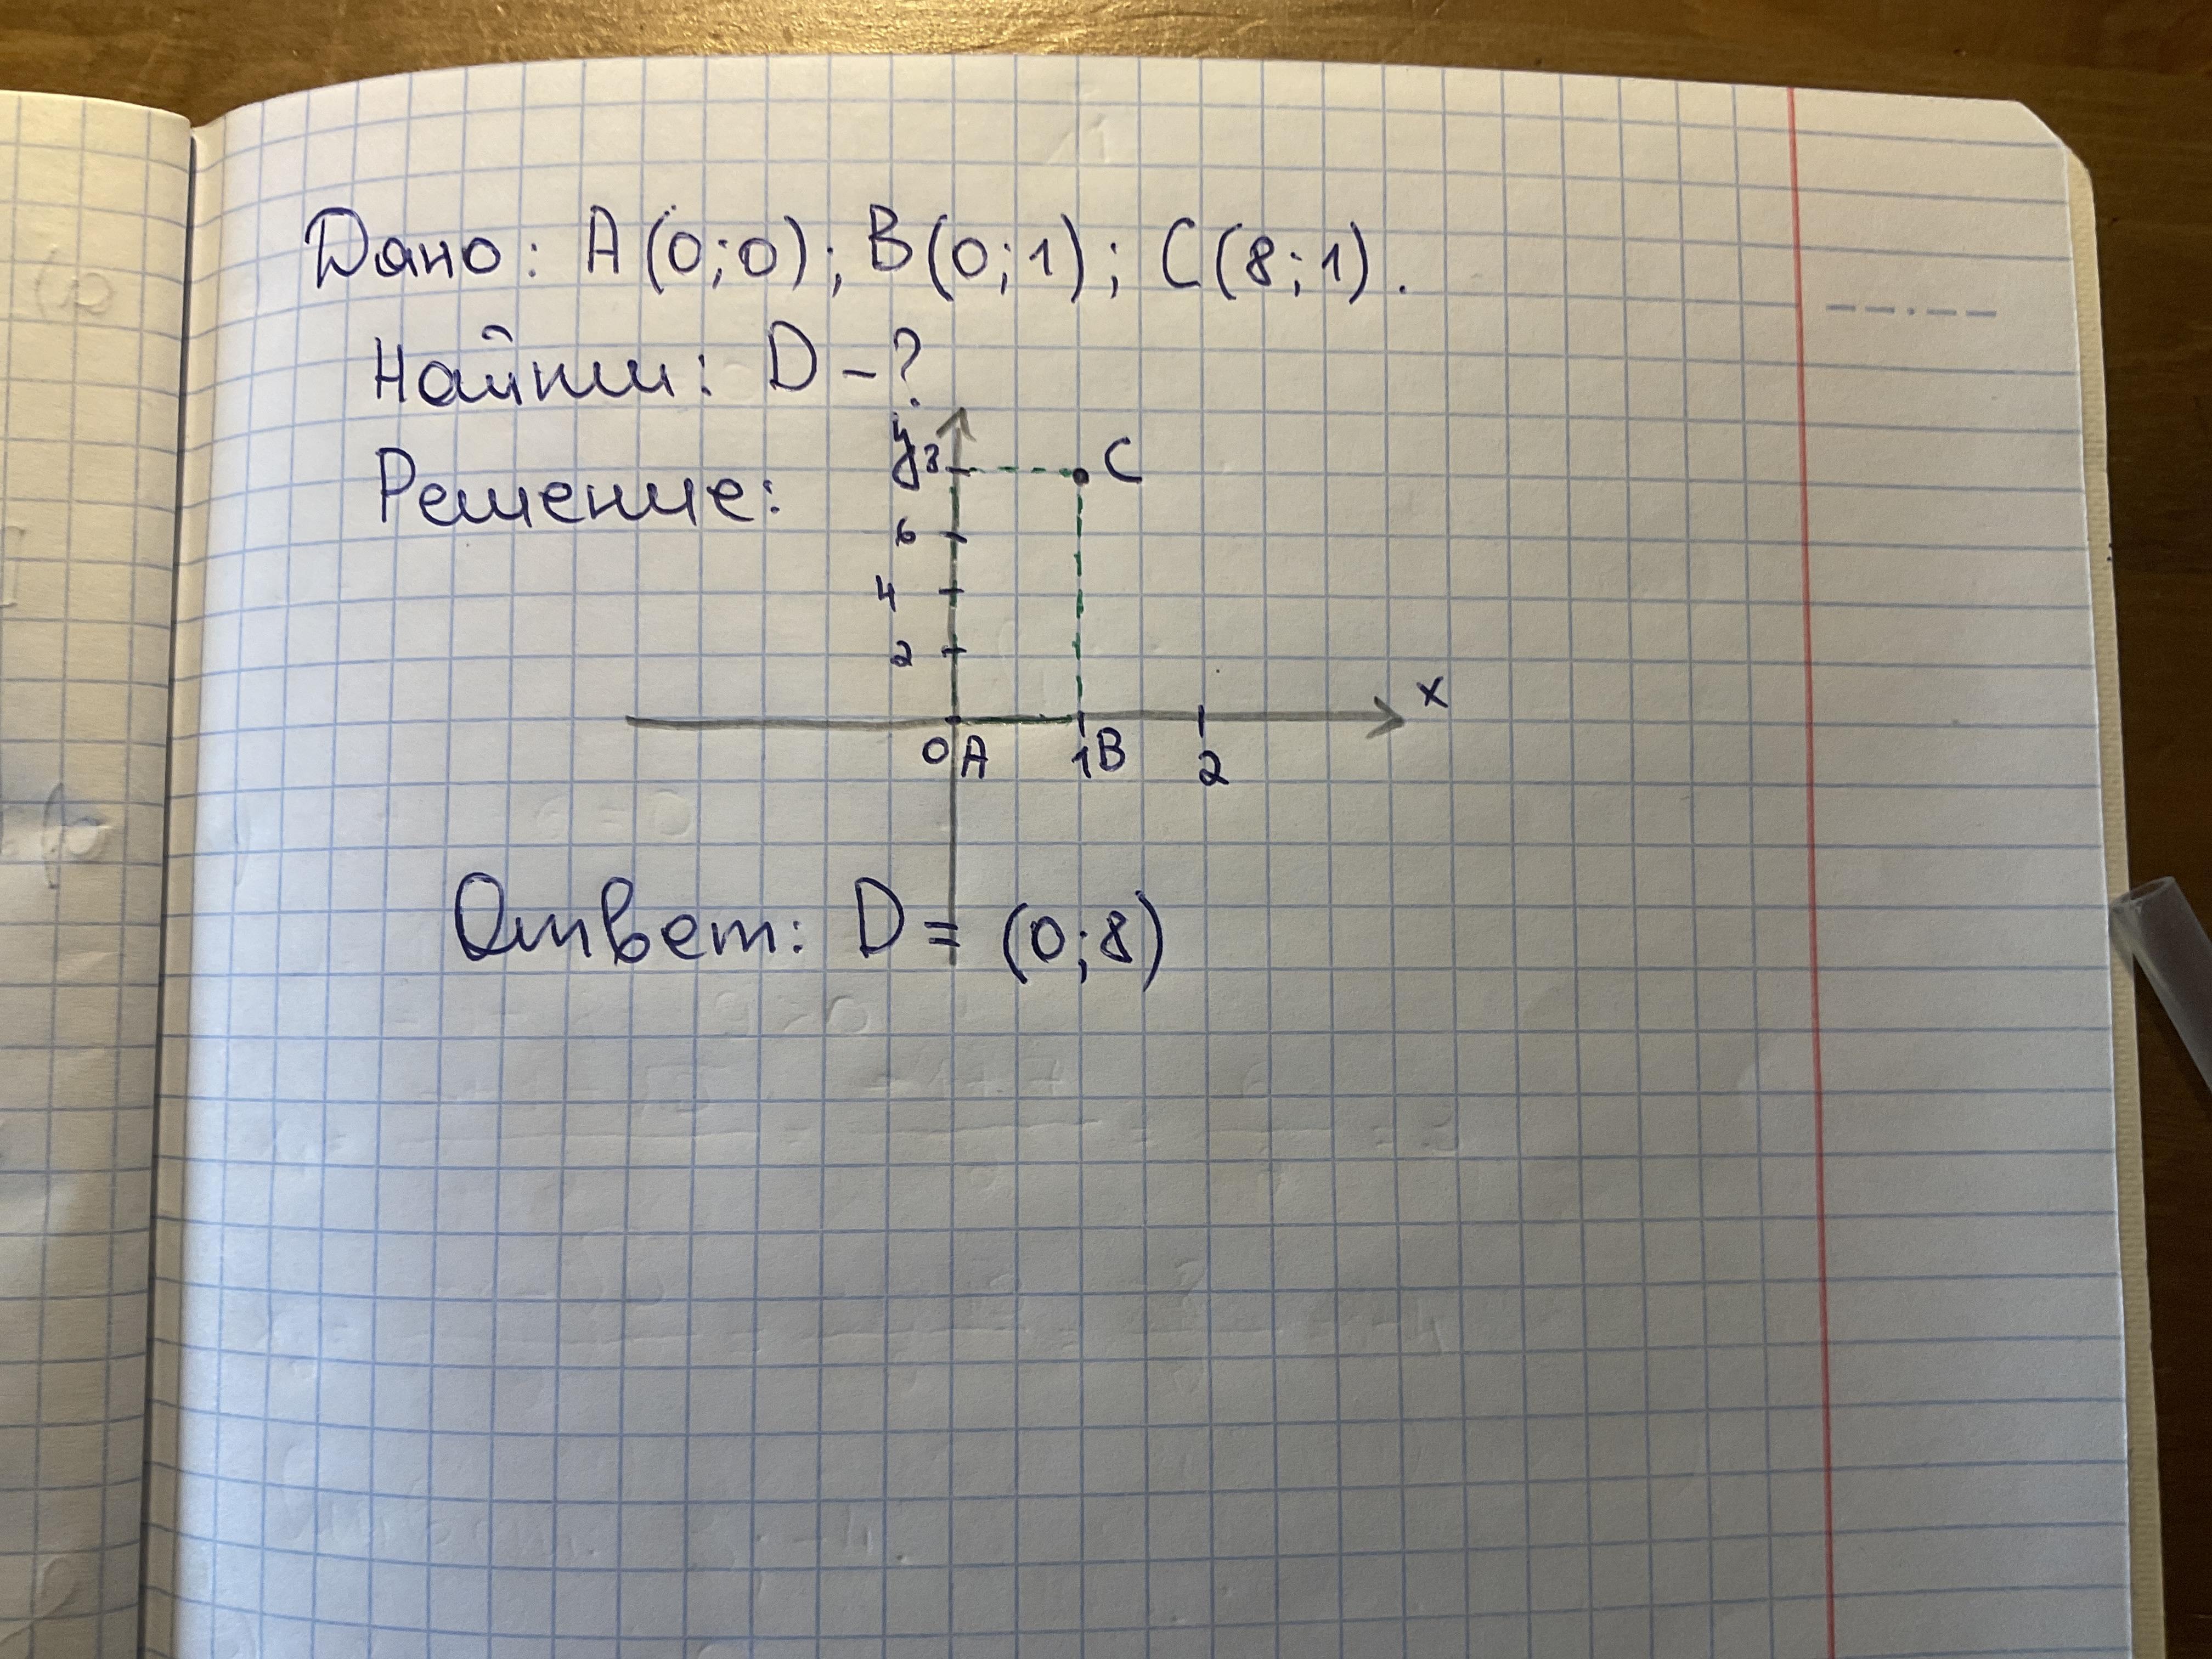 Дано: A(0;0); B(0;1); C(8;1).
Найти: D-?
Решение:
y 8 C
6
4
2
x
0 A 1 B 2
Ответ: D = (0;8)